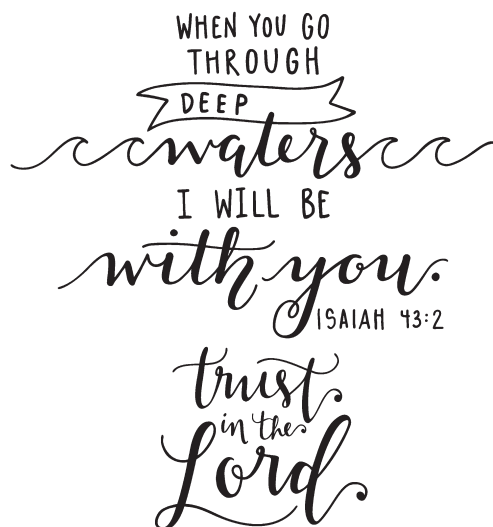 WHEN YOU GO
THROUGH
DEEP
waters
I WILL BE
with you.
ISAIAH 43:2
trust
in the
Lord